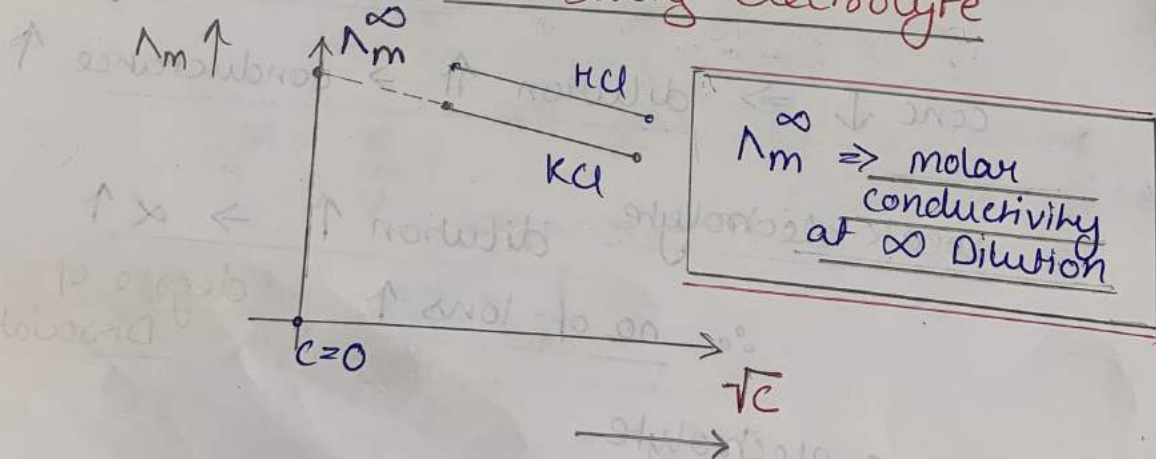 Strong electrolyte
Λm ↑
Λm∞
HCl
KCl
Λm∞ ⇒ molar
conductivity
at ∞ Dilution
C=0
√C